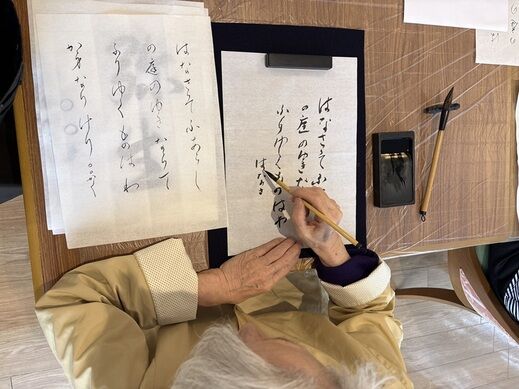 はなさそふ
の庭の雪な
ふりゆくものはわ
はなさそふあらし
の庭のゆきならて
ふりゆくものはわ
か身なりけり